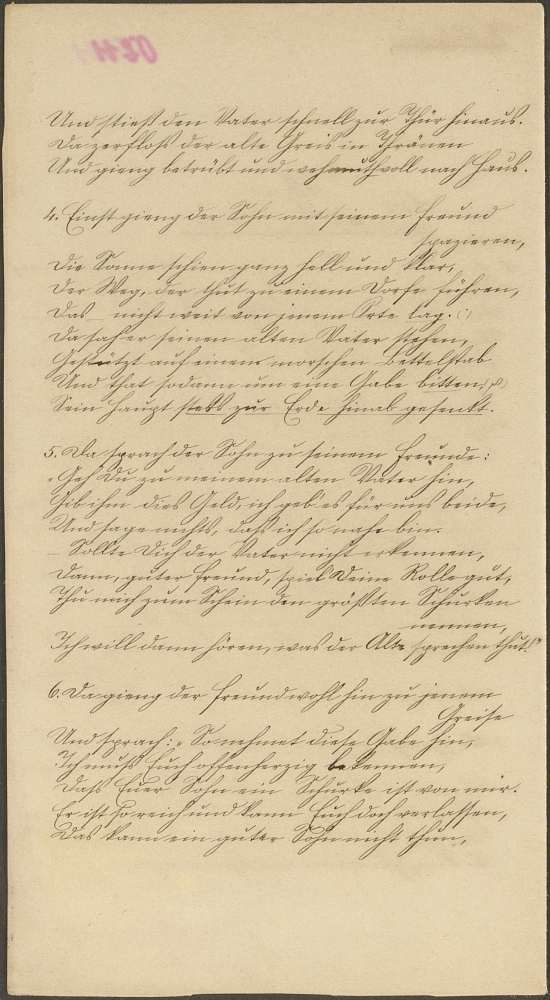 Und stieß den Vater schnell zur Thür hinaus.
Da zerfloß der alte Greis in Thränen
Und gieng betrübt und wehmuthsvoll nach Haus.
4. Einst gieng der Sohn mit seinem Freund
spazieren,
Die Sonne schien ganz hell und klar,
Der Weg, der thut zu einem Dorfe führen,
Das nicht weit von jenem Orte lag.
Da sah er seinen alten Vater stehen,
Gestützt auf einem morschen Bettelstab
Und that sodann um eine Gabe bitten,
Sein Haupt stets zur Erde hinab gesenkt.
5. Da sprach der Sohn zu seinem Freunde:
„Geh Du zu meinem alten Vater hin,
Gib ihm dies Geld, ich geb' es für uns beide,
Und sage nichts, daß ich so nahe bin.
Sollte Dich der Vater nicht erkennen,
Dann, guter Freund, spiel Deine Rolle gut,
Thu mich zum Schein den größten Schurken
nennen,
Ich will dann hören, was der Alte sprechen thut!"
6. Da gieng der Freund wohl hin zu jenem
Greise
Und sprach: „So nehmet diese Gabe hin,
Ich muß Euch offenherzig bekennen,
Daß Euer Sohn ein Schurke ist von mir.
Er ist so reich und kann Euch doch verlassen,
Das kann ein guter Sohn nicht thun,